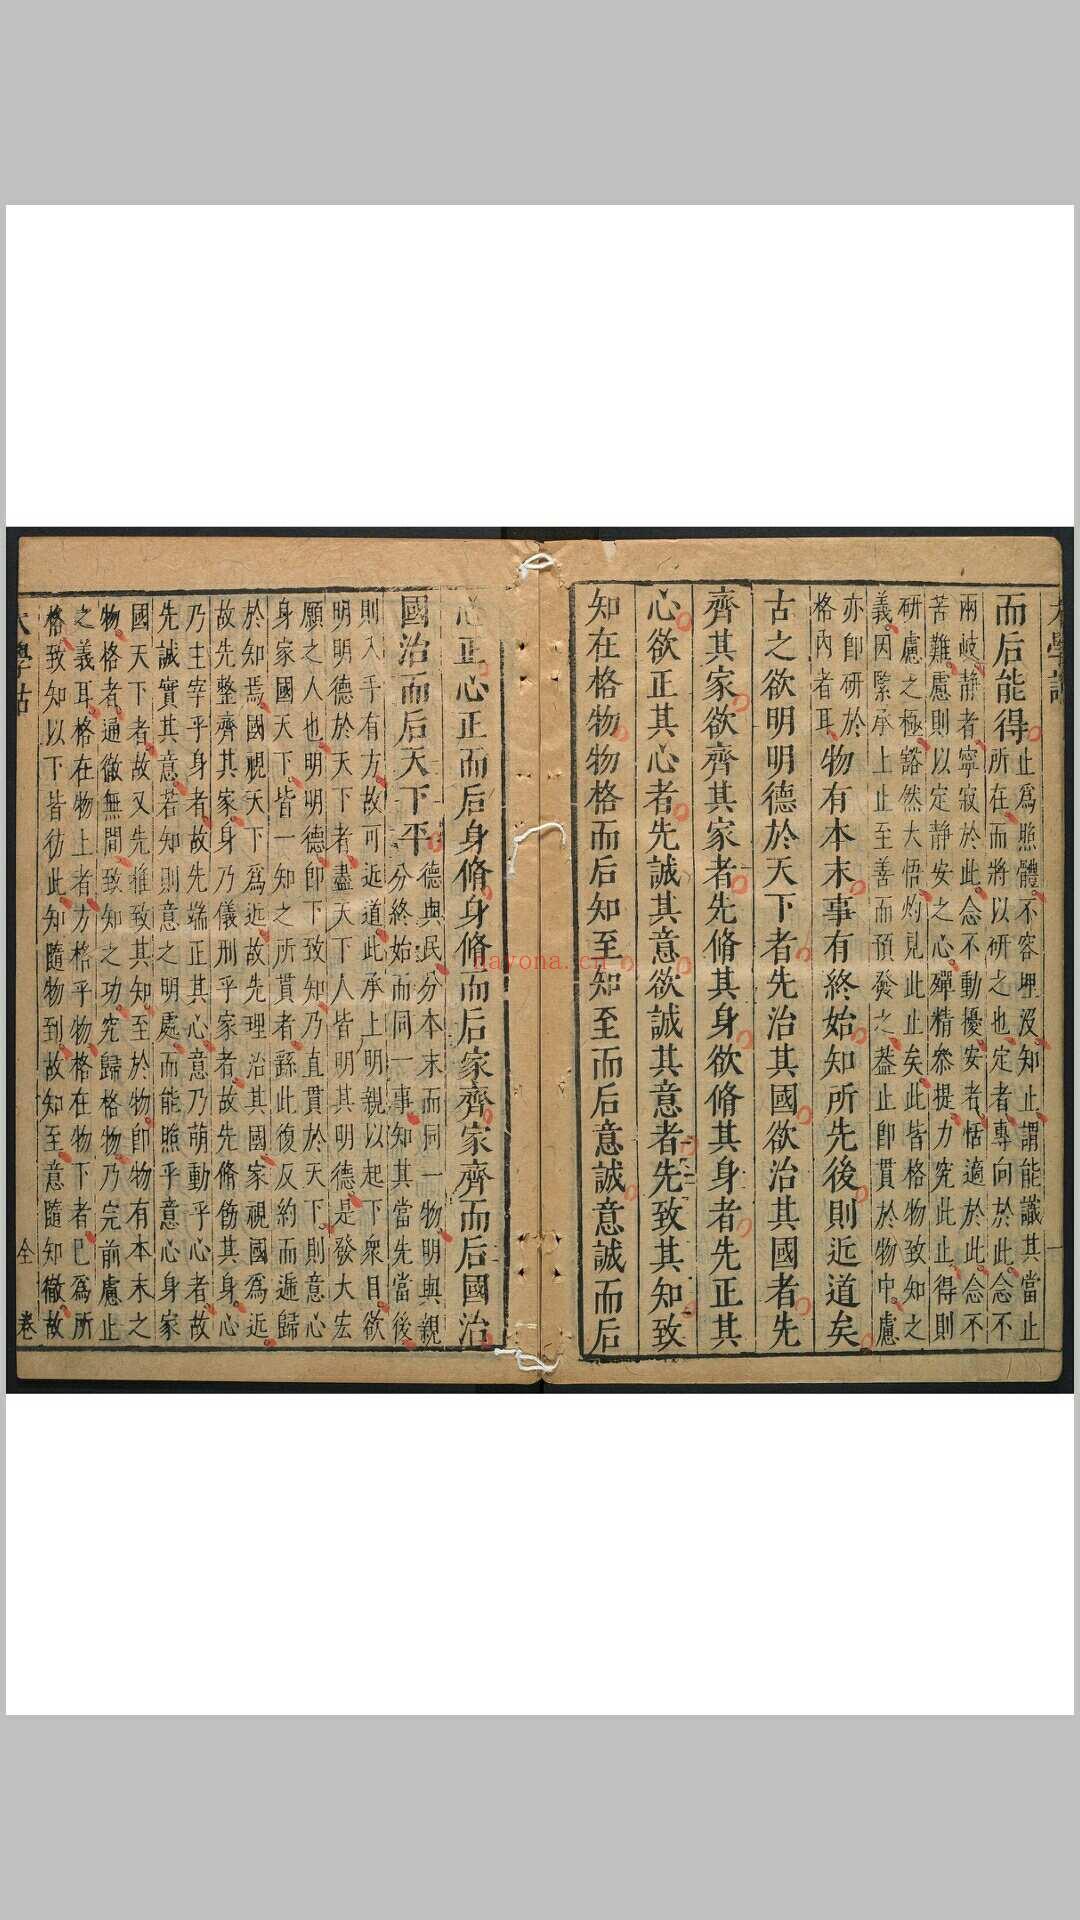 大學詁
而后能得
止為照體不容埋没知止謂能識其當止
所在而將以研之也定者專向於此念不
兩岐靜者寧寂於此念不動擾安者恬適於此念不
苦難慮則以定靜安之心殫精叅提力究此止得則
研慮之極豁然大悟灼見此止矣此皆格物致知之
義因緊承上止至善而預發之葢止即貫於物中慮
亦即研於
格內者耳
物有本末事有終始知所先後則近道矣
古之欲明明德於天下者先治其國欲治其國者先
齊其家欲齊其家者先脩其身欲脩其身者先正其
心欲正其心者先誠其意欲誠其意者先致其知致
知在格物物格而后知至知至而后意誠意誠而后
心正心正而后身脩身脩而后家齊家齊而后國治
國治而后天下平
德與民分本末而同一物明與親
分終始而同一事知其當先當後
則入手有方故可近道此承上明親以起下衆目欲
明明德於天下者盡天下人皆明其明德是發大宏
願之人也明明德即下致知乃直貫於天下則意心
身家國天下皆一知之所貫者繇此復反約而遞歸
於知焉國視天下為近故先理治其國家視國為近
故先整齊其家身乃儀刑乎家者故先脩飭其身心
乃主宰乎身者故先端正其心意乃萌動乎心者故
先誠實其意若知則意之明處而能照乎意心身家
國天下者故又先推致其知至於物即物有本末之
物格者通徹無間致知之功究歸格物乃完前慮止
之義耳格在物上者方格乎物格在物下者已為所
格致知以下皆彷此知隨物到故知至意隨知徹故
大學詁 全卷
nayona.cn